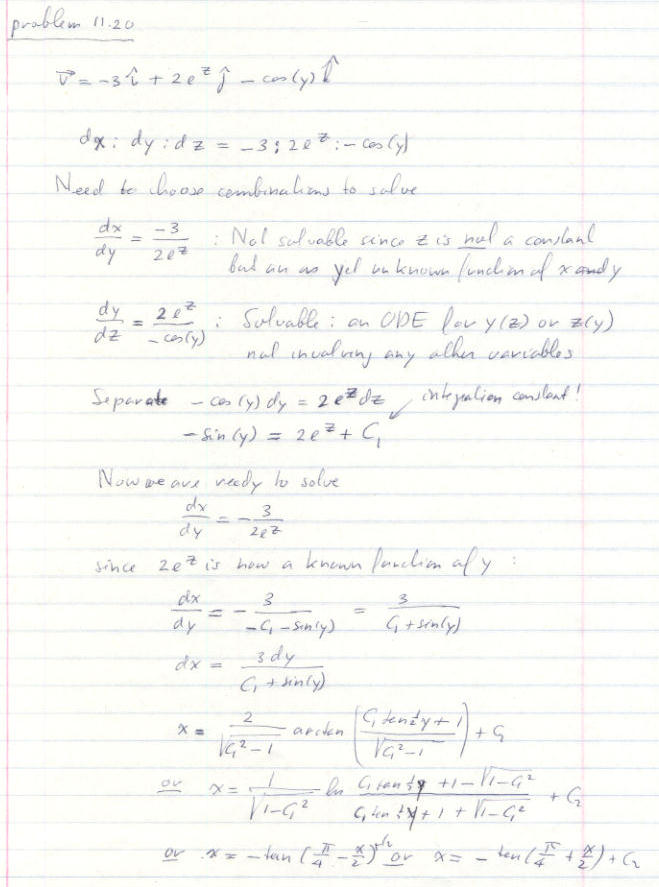 problem 11.20
v⃗ = -3 î + 2e^z ĵ - cos(y) k̂
dx : dy : dz = -3 : 2e^z : -cos(y)
Need to choose combinations to solve
dx/dy = -3/(2e^z) : Not solvable since z is not a constant
but an as yet unknown function of x and y
dy/dz = 2e^z/(-cos(y)) : Solvable : an ODE for y(z) or z(y)
not involving any other variables
Separate -cos(y) dy = 2e^z dz integration constant!
-sin(y) = 2e^z + C₁
Now we are ready to solve
dx/dy = - 3/(2e^z)
since 2e^z is now a known function of y :
dx/dy = - 3/(-C₁ - sin(y)) = 3/(C₁ + sin(y))
dx = 3 dy/(C₁ + sin(y))
x = 2/√(C₁² - 1) arctan ((C₁ tan ½y + 1)/√(C₁² - 1)) + C₂
or x = 1/√(1 - C₁²) ln (C₁ tan ½y + 1 - √(1 - C₁²))/(C₁ tan ½y + 1 + √(1 - C₁²)) + C₂
or x = - tan (π/4 - x/2) + C₂ or x = - tan (π/4 + x/2) + C₂